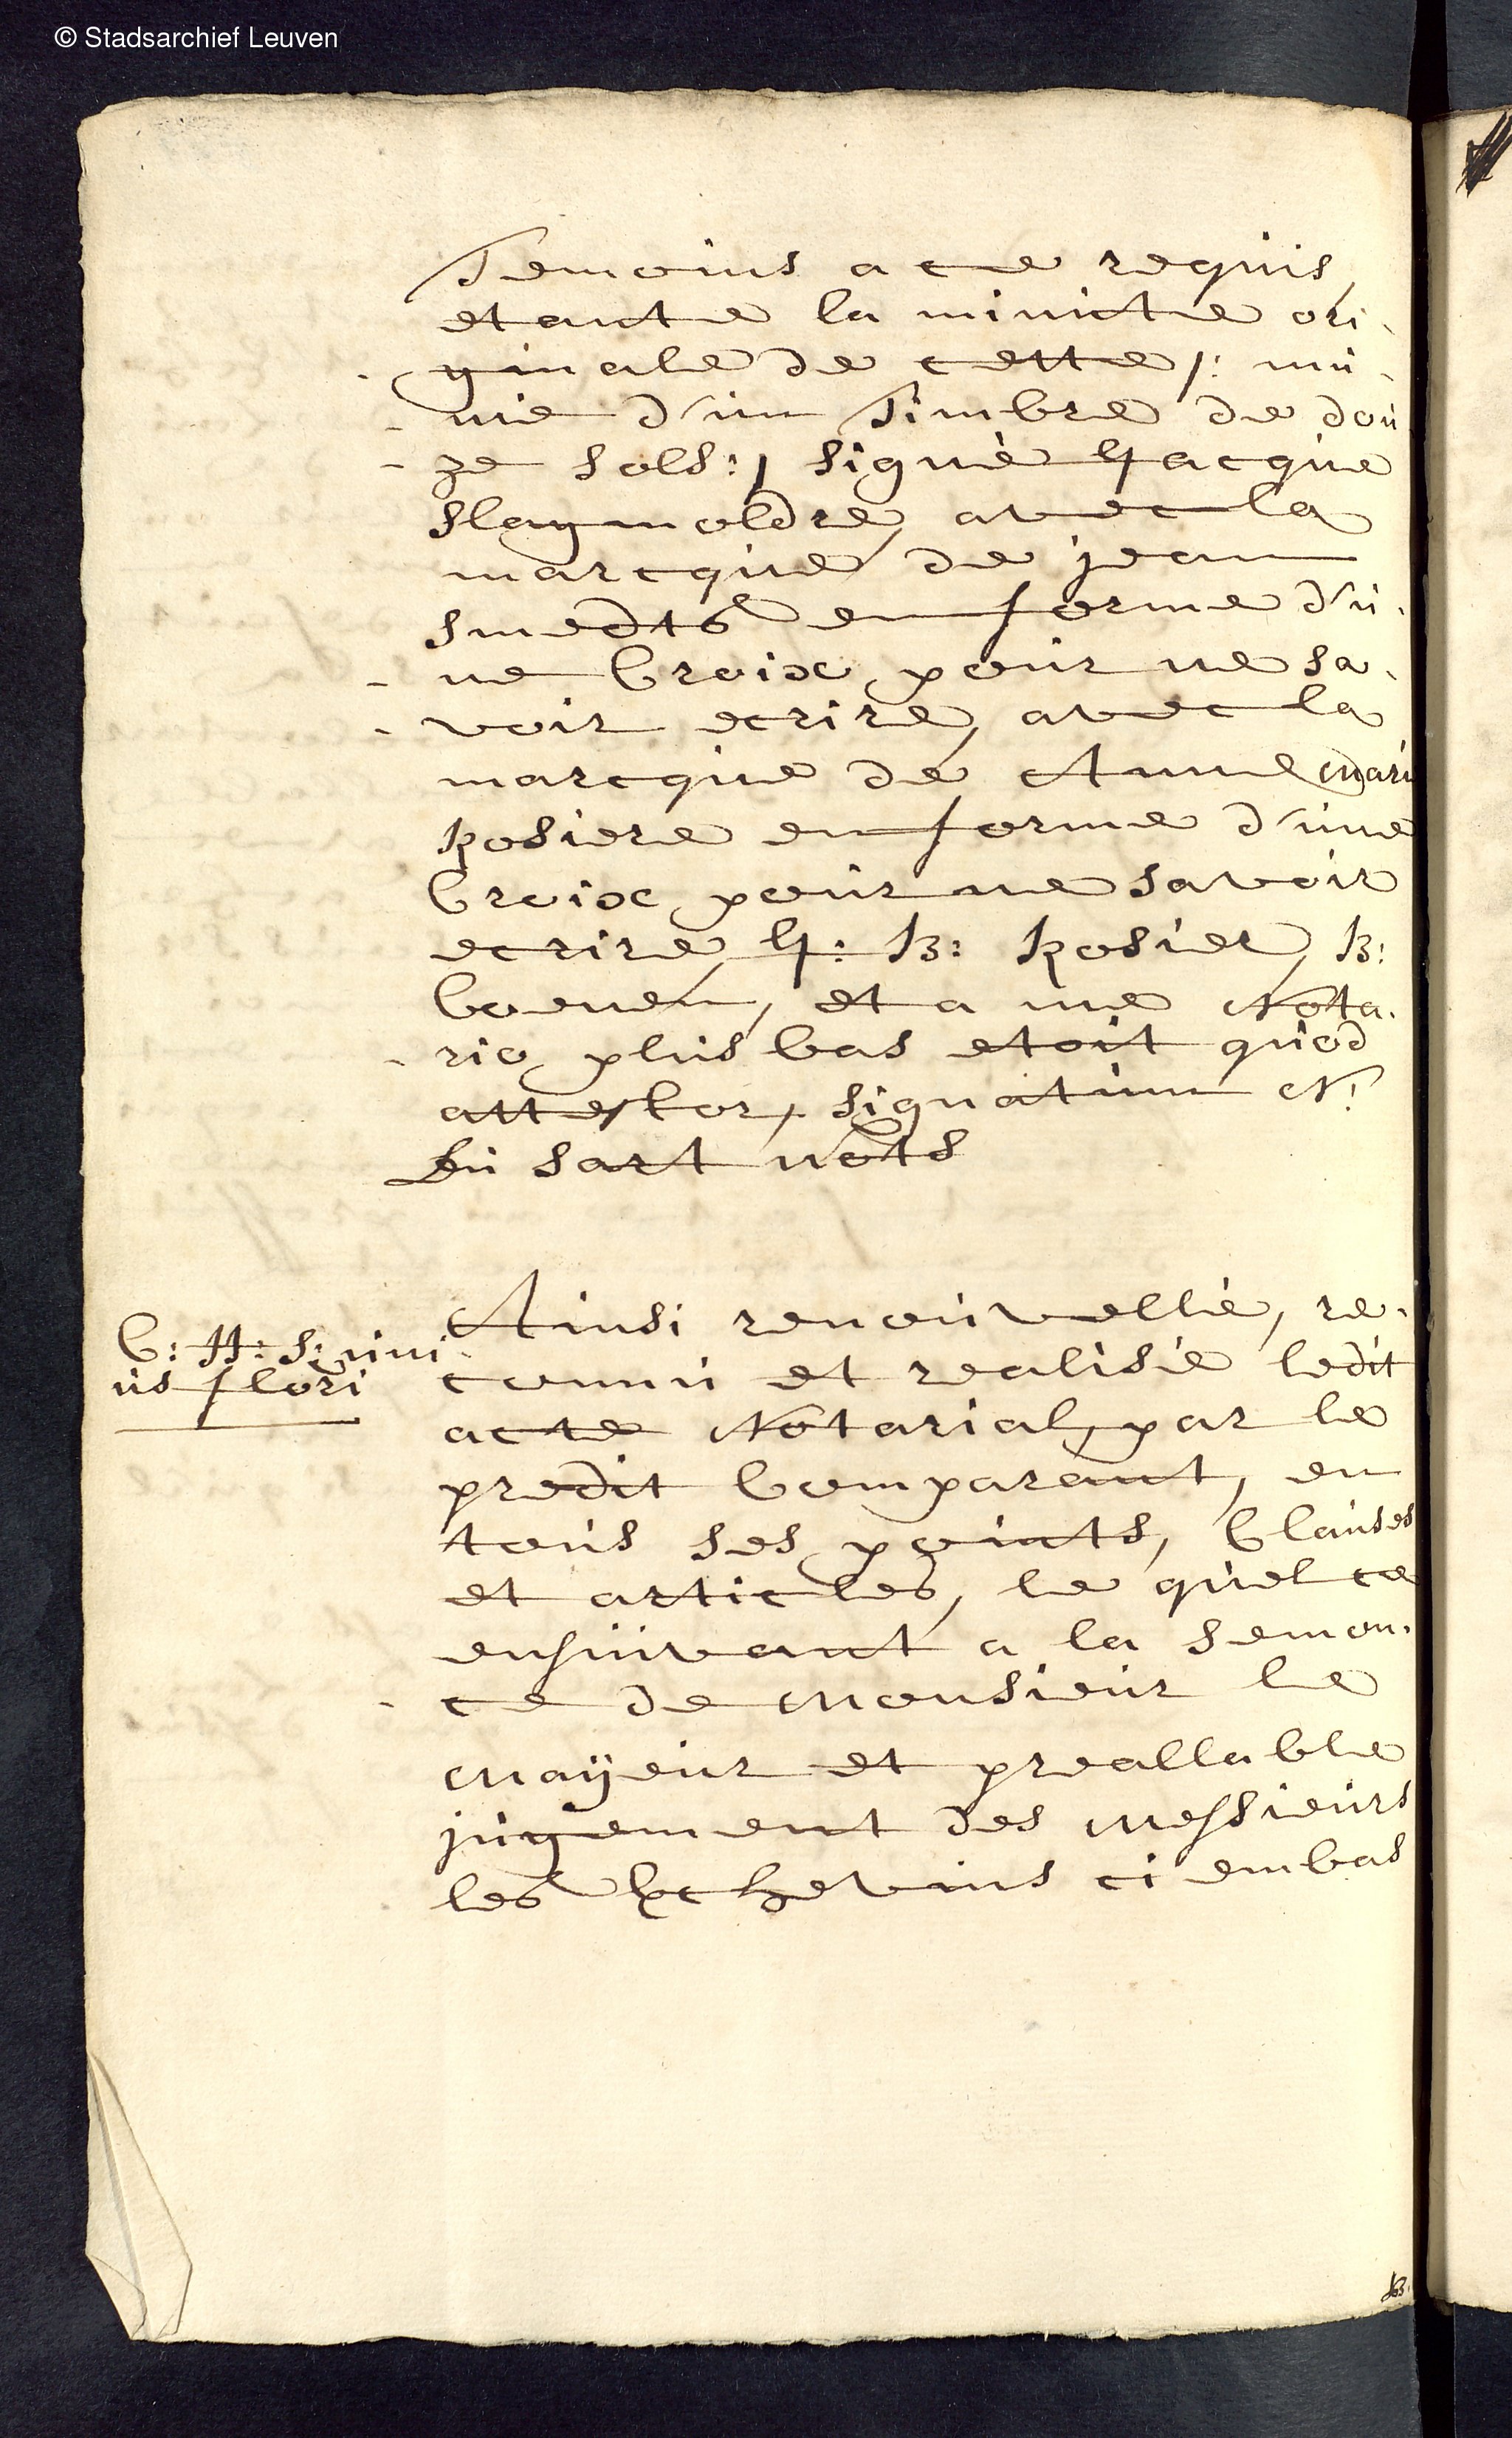 © Stadsarchief Leuven
Temoins a ce requis,
etante la minute ori-
-ginale de cette /: mu-
-nie d'un Timbre de dou
-ze sols :/ signé Jacque
slaymoldre, avec la
marcque de jean
smedts en forme d'u-
-ne Croix pour ne sa-
-voir ecrire, avec la
marcque de Anne Mari
Rosiere en forme d'une
Croix pour ne savoir
ecrire, J: B: Rosier, B:
Coenen, et a me Nota-
-rio plus bas etoit quod
attestor, signatum N:
Du Sart nots
C: H: S: uni
us flori
Ainsi renouvellé, re-
connu et realisé ledit
acte Notarial, par le
predit Comparant, en
tous ses points, Clauses
et articles, le quel ce
ensuivant a la semon-
-ce de Monsieur le
Mayeur et preallable
jugement des Messieurs
les Echevins ci embas